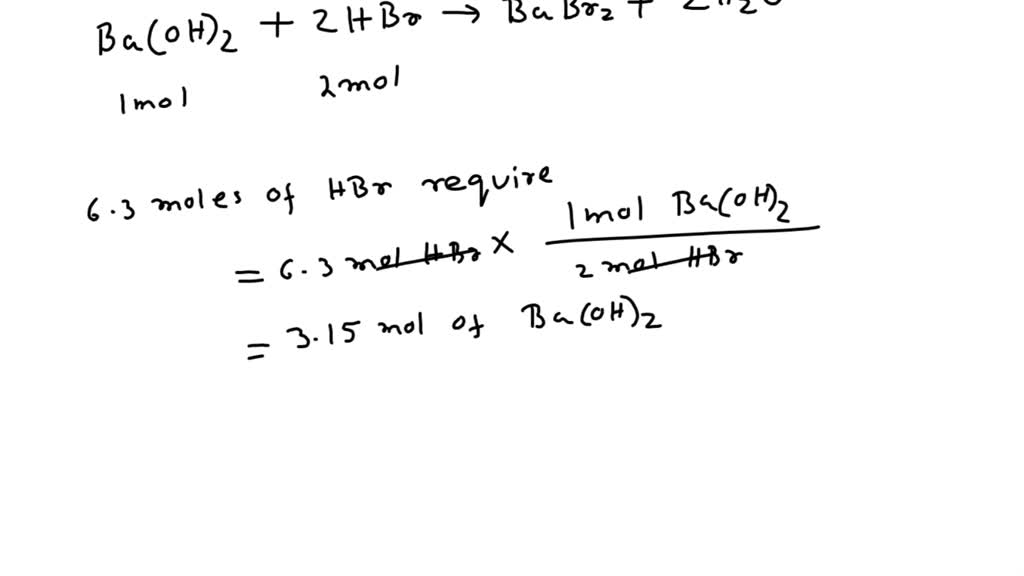 Ba(OH)2 + 2HBr → BaBr2 + 2H2O
1mol 2mol
6.3 moles of HBr require
= 6.3 mol HBr × 1mol Ba(OH)2 / 2 mol HBr
= 3.15 mol of Ba(OH)2